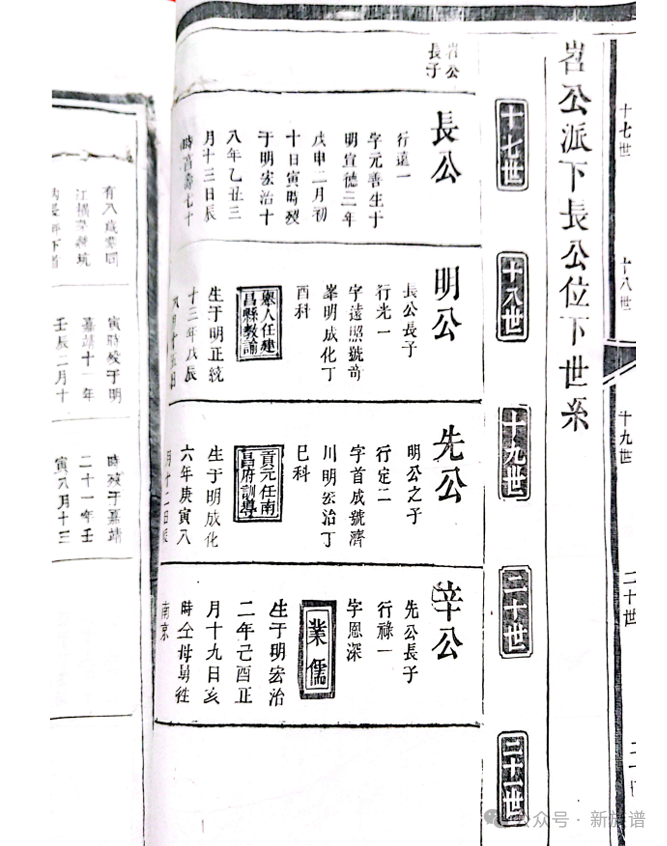 岧公派下長公位下世系
十七世
十八世
十九世
二十世
二十一世
岧公
長子
長公
行遠一
字元善生于
明宣德三年
戊申二月初
十日寅時殁
于明宏治十
八年乙丑三
月十三日辰
時壽七十
明公
長公長子
行光一
字遠照號苛
峯明成化丁
酉科
舉人任建
昌縣教諭
生于明正統
十三年戊辰
先公
明公之子
行定二
字首成號濟
川明宏治丁
巳科
貢元任南
昌府訓導
生于明成化
六年庚寅八
月十二日辰
宰公
先公長子
行祿一
字恩深
業儒
生于明宏治
二年己酉正
月十九日亥
時仝母舅徃
南京
十七世
十八世
十九世
二十世
寅時殁于明
嘉靖十一年
壬辰二月十
時殁于嘉靖
二十一年壬
寅八月十三
公众号·新族谱